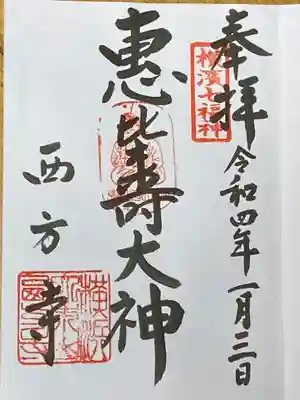 奉拝
横濱七福神
令和四年一月三日
恵比壽大神
西方寺